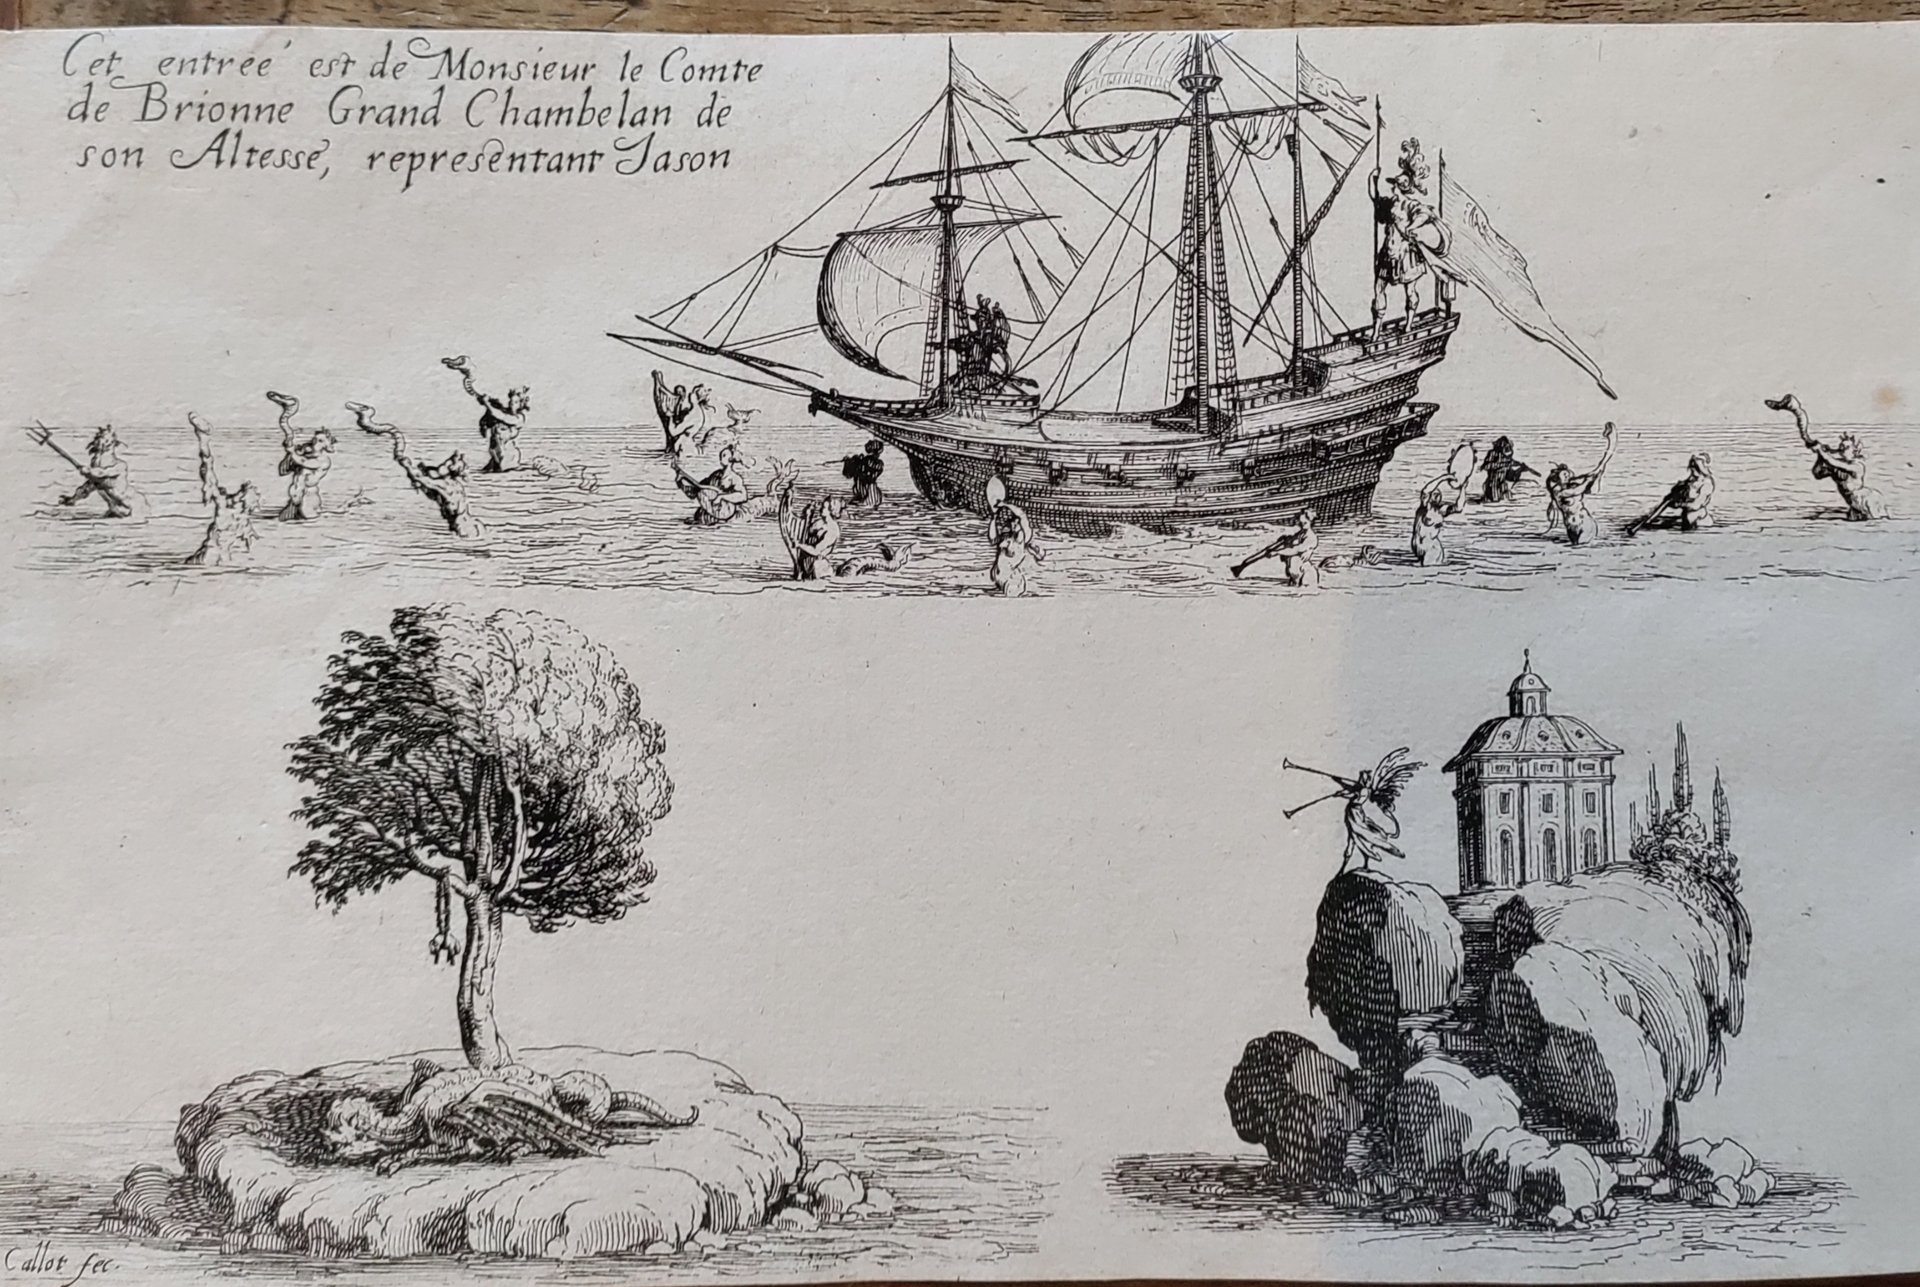 Cet entreé est de Monsieur le Comte
de Brionne Grand Chambelan de
son Altesse, representant Jason
Callot fec.